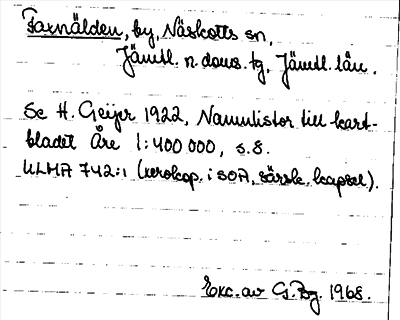 Faxnälden, by, Näskotts sn,
Jämtl. n. doms. tg, Jämtl. län.
Se H. Geijer 1922, Namnlistor till kart-
bladet Åre 1:400 000, s. 8.
ULMA 742:1 (xerokop. i SOA, särsk. kapsel).
Exc. av G. Bg. 1968.